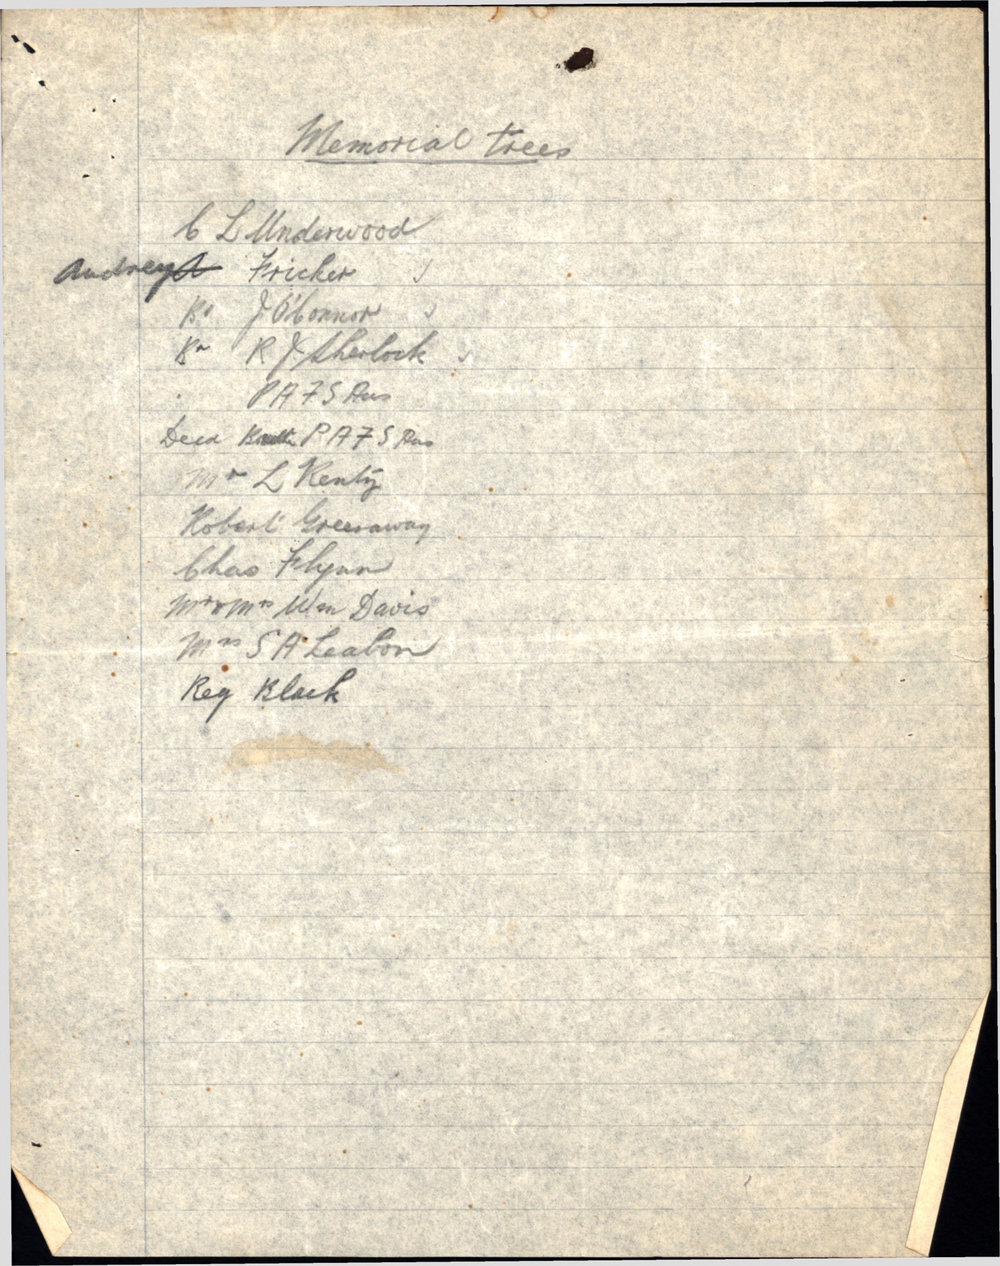 Memorial Trees
C L Underwood
Audrey A Fricker
Br J O'Connor
Br R J Sherlock
P A F S Aus
Decd Broth P A F S Aus
Mr L Renty
Robert Greenaway
Chas Flynn
Mr & Mrs Wm Davis
Mrs S A Leabon
Reg Black